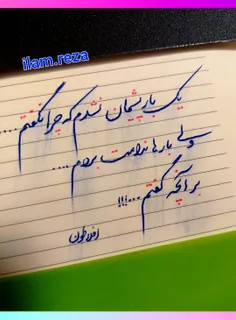 ilam.reza
یک بار پشیمان نشدم که چرا نگفتم....
ولی بارها ندامت بردم...
بر آنچه گفتم...!!!
افلاطون